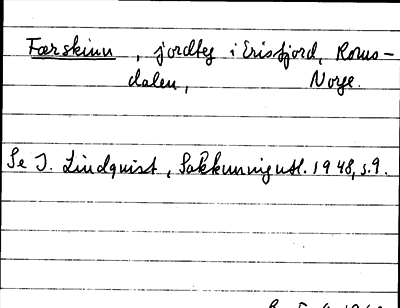 Færskinn, jordteg i Erisfjord, Roms-
dalen, Norge.
Se I. Lindquist, Sakkunnigutl. 1948, s. 9.